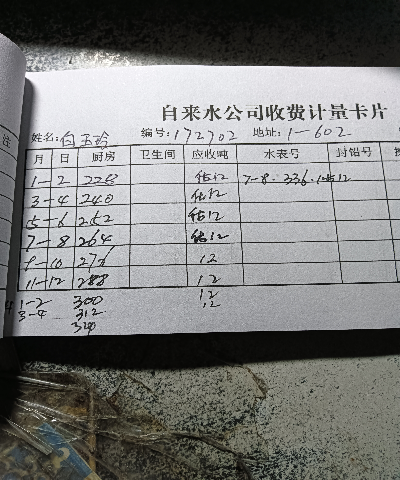 自来水公司收费计量卡片
姓名:白玉玲 编号:172702 地址:1-602
注
月 日 厨房 卫生间 应收吨 水表号 封铅号
1-2 228 估12 7-8.336.
3-4 240 估12
5-6 252 估12
7-8 264 估12
9-10 276 12
11-12 288 12
1-2 300 12
3-4 312 12
324